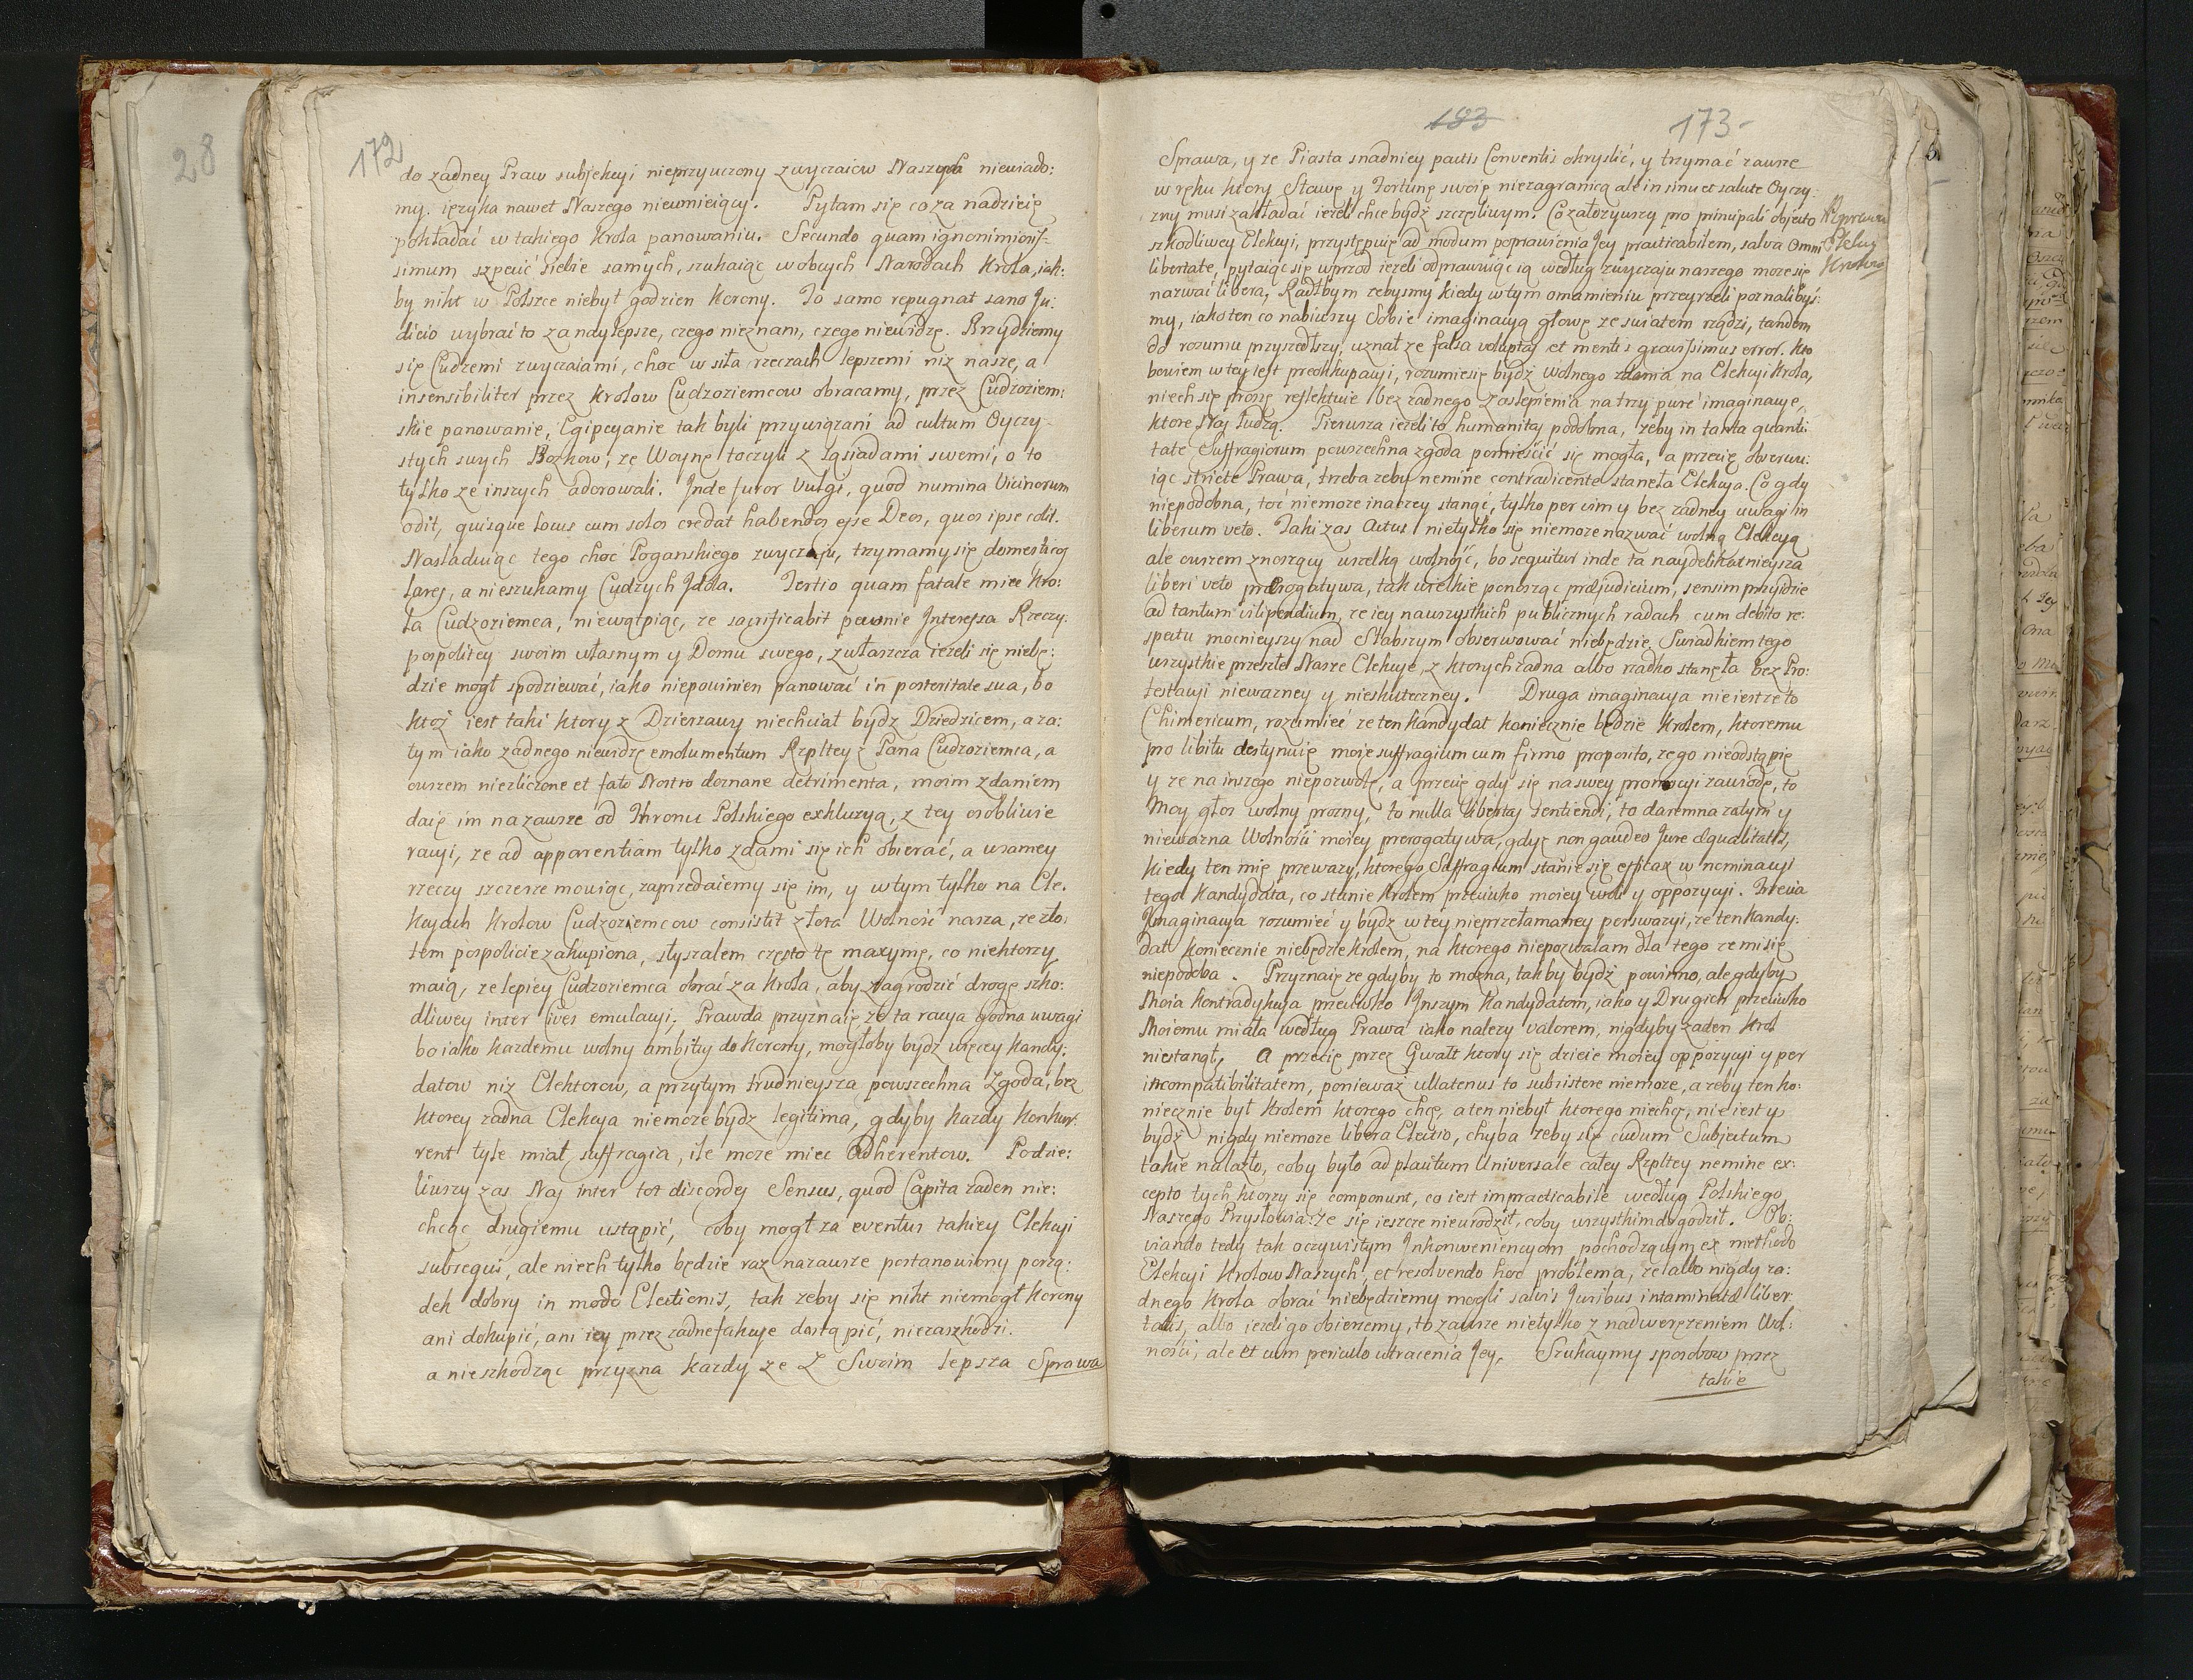 28
172
do zadney Praw subjekcyi nieprzyuczony zwyczaiow Naszych niewiado:
my. ięzyka nawet Naszego nieumieiący. Pytam się co za nadzieię
pokładać w takiego Krola panowaniu. Secundo quam ignonimioniss-
simum szpecić siebie samych, szukaiąc w obcych Narodach Krola, iak:
by nikt w Polszce niebył godzien Korony. To samo repugnat sano Ju:
dicio wybrać to za naylepsze, czego nieznam, czego niewidzę. Brzydziemy
się Cudzemi zwyczaiami, choc w siła rzeczach lepszemi niz nasze, a
insensibiliter przez Krolow Cudzoziemcow obracamy, przez Cudzoziem:
skie panowanie, Egipcyanie tak byli przywiązani ad cultum Oyczy-
stych swych Bozkow, ze Woynę toczyli z Sąsiadami swemi, o to
tylko ze inszych adorowali. Inde furor Vulgi, quod numina Vicinorum
odit, quisque locus cum solos credat habendos esse Deos, quos ipse colit.
Nasladuiąc tego choć Poganskiego zwyczaju, trzymamy się domesticos
Lares, a nieszukamy Cudzych Idola. Tertio quam fatale miec Kro:
la Cudzoziemca, niewątpiąc, ze sacrificabit pewnie Interessa Rzeczy:
pospolitey swoim własnym y Domu swego, zwłaszcza iezeli się niebę:
dzie mogł spodziewać, iako niepowinien panować in posteritate sua, bo
ktoż iest taki ktory z Dzierzawy niechciał bydz Dziedzicem, a za:
tym iako zadnego niewidzę emolumentum Rzpltey z Pana Cudzoziemca, a
owszem niezliczone et fato Nostro doznane detrimenta, moim zdaniem
daię im na zawsze od Thronu Polskiego exkluzyą, z tey osobliwie
racyi, ze ad apparentiam tylko zdami się ich obierać, a wsamey
rzeczy szczerze mowiąc, zaprzedaiemy się im, y w tym tylko na Ele:
kcyach Krolow Cudzoziemcow consistit złota Wolność nasza, ze zło:
tem pospolicie zakupiona, słyszałem często tę maxymę, co niektorzy
maią, ze lepiey Cudzoziemca obrać za Krola, aby zagrodzić drogę szko:
dliwey inter Cives emulacyi; Prawda przyznaię ze ta racya godna uwagi
bo iako kazdemu wolny ambitus do Korony, mogłoby bydz więcey Kandy:
datow niz Elektorow, a przytym trudnieysza powszechna Zgoda, bez
ktorey zadna Elekcya niemoze bydz legitima, gdyby kazdy Konkur:
rent tyle miał suffragia, ile moze miec Adherentow. Podzie:
liwszy zas Nas inter tot discordes Sensus, quod Capita zaden nie:
chcąc drugiemu ustąpić, coby mogł za eventus takiey Elekcyi
subsequi, ale niech tylko będzie raz nazawsze postanowiony porzą:
dek dobry in modo Electionis, tak zeby się nikt niemogł Korony
ani dokupić, ani iey przez zadne fakcye dostąpić, niezaszkodzi.
a nieszkodząc przyzna kazdy ze z Swoim lepsza Sprawa
183
173-
Sprawa, y ze Piasta snadniey pactis Conventis okryslić, y trzymać zawsze
w ręku ktory Sławę y Fortunę swoię niezagranicą ale in sinu et salute Oyczy:
zny musi zakładać iezeli chce bydź szczęsliwym. Co załozywszy pro principali objecto
szkodliwey Elekcyi, przystępuię ad modum poprawienia Jey practicabilem, salva omni
libertate, pytaiąc się wprzod iezeli odprawuiąc ią według zwyczaju naszego moze się
Elekcyi
Krolow
nazwać libera, Radbym zebysmy kiedy w tym omamieniu przeyrzeli poznalibys:
my, iako ten co nabiwszy Sobie imaginacyą głowę ze swiatem rządzi, tandem
do rozumu przyszedłszy, uznał ze falsa voluptas et mentis gravissimus error. Kto
bowiem w tey iest preokkupacyi, rozumie się bydź wolnego zdania na Elekcyi Krola,
niech się proszę reflektuie bez zadnego zaslepienia na trzy puré imaginacye,
ktore Nas łudzą. Pierwsza iezeli to humanitas podobna, zeby in tanta quanti:
tate Suffragiorum powszechna zgoda pomieścić się mogła, a przecię obserwu:
iąc stricte Prawa, trzeba zeby nemine contradicente stanęła Elekcya. Co gdy
niepodobna, toć niemoze inaczey stanąć, tylko per vim y bez zadney uwagi in
liberum veto. Taki zas Actus nietylko się niemoze nazwać wolną Elekcyą
ale owszem znoszący wszelką wolność, bo sequitur inde ta naydelikatnieysza
liberi veto prærogatywa, tak wielkie ponosząc præjudicium, sensim przyidzie
ad tantum vilipendium, ze iey na wszystkich publicznych radach cum debito re:
spectu mocnieyszy nad Słabszym obserwować niebędzie, Swiadkiem tego
wszystkie przeszłe Nasze Elekcye, z ktorych zadna albo rzadko stanęła bez Pro:
testacyi niewazney y nieskuteczney. Druga imaginacya nie iest ze to
Chimericum, rozumieć ze ten kandydat koniecznie będzie Krolem, ktoremu
pro libitu destynuię moie suffragium cum firmo proposito, ze go nieodstąpię
y ze na inszego niepozwolę, a przecię gdy się na swey promocyi zawiodę, to
Moy głos wolny prozny, to nulla libertas sentiendi, to daremna zatym y
niewazna Wolności moiey prerogatywa, gdyż non gaudeo Jure æqualitatis,
kiedy ten mię przewazy, ktorego Suffragium stanie się efficax w nominacyi
tego Kandydata, co stanie Krolem przeciwko moiey woli y oppozycyi. Trzecia
Imaginacya rozumieć y bydz w tey nieprzełamaney perswazyi, ze ten kandy:
dat koniecznie niebędzie Krolem, na ktorego niepozwalam dla tego ze mi się
niepodoba. Przyznaię ze gdyby to mozna, tak by bydź powinno, ale gdyby
Moia Kontradykcya przeciwko Inszym Kandydatom, iako y Drugich przeciwko
Moiemu miała według Prawa iako nalezy valorem, nigdyby zaden Krol
niestanął, A przecię przez Gwałt ktory się dzieie moiey oppozycyi y per
incompatibilitatem, ponieważ ullatenus to subsistere niemoze, a zeby ten ko:
niecznie był Krolem ktorego chcę, a ten niebył ktorego niechcę, nie iest y
bydź nigdy niemoze libera Electio, chyba zeby się cudum Subjectum
takie nalazło, coby było ad plautum Universale całey Rzpltey nemine ex:
cepto tych ktorzy się componunt, co iest impracticabile według Polskiego
Naszego Przysłowia: Ze się ieszcze nieurodził, coby wszystkim dogodził. Ob:
viando tedy tak oczywistym Inkonweniencyom pochodzącym ex methodo
Elekcyi Krolow Naszych, et resolvendo hoc problema, ze albo nigdy za:
dnego Krola obrać niebędziemy mogli salvis Juribus intaminatæ liber:
tatis, albo iezeli go obierzemy, to zawsze nietylko z nadweręzeniem Wol:
ności, ale et cum periculo utracenia Jey. Szukaymy sposobow przez
takie